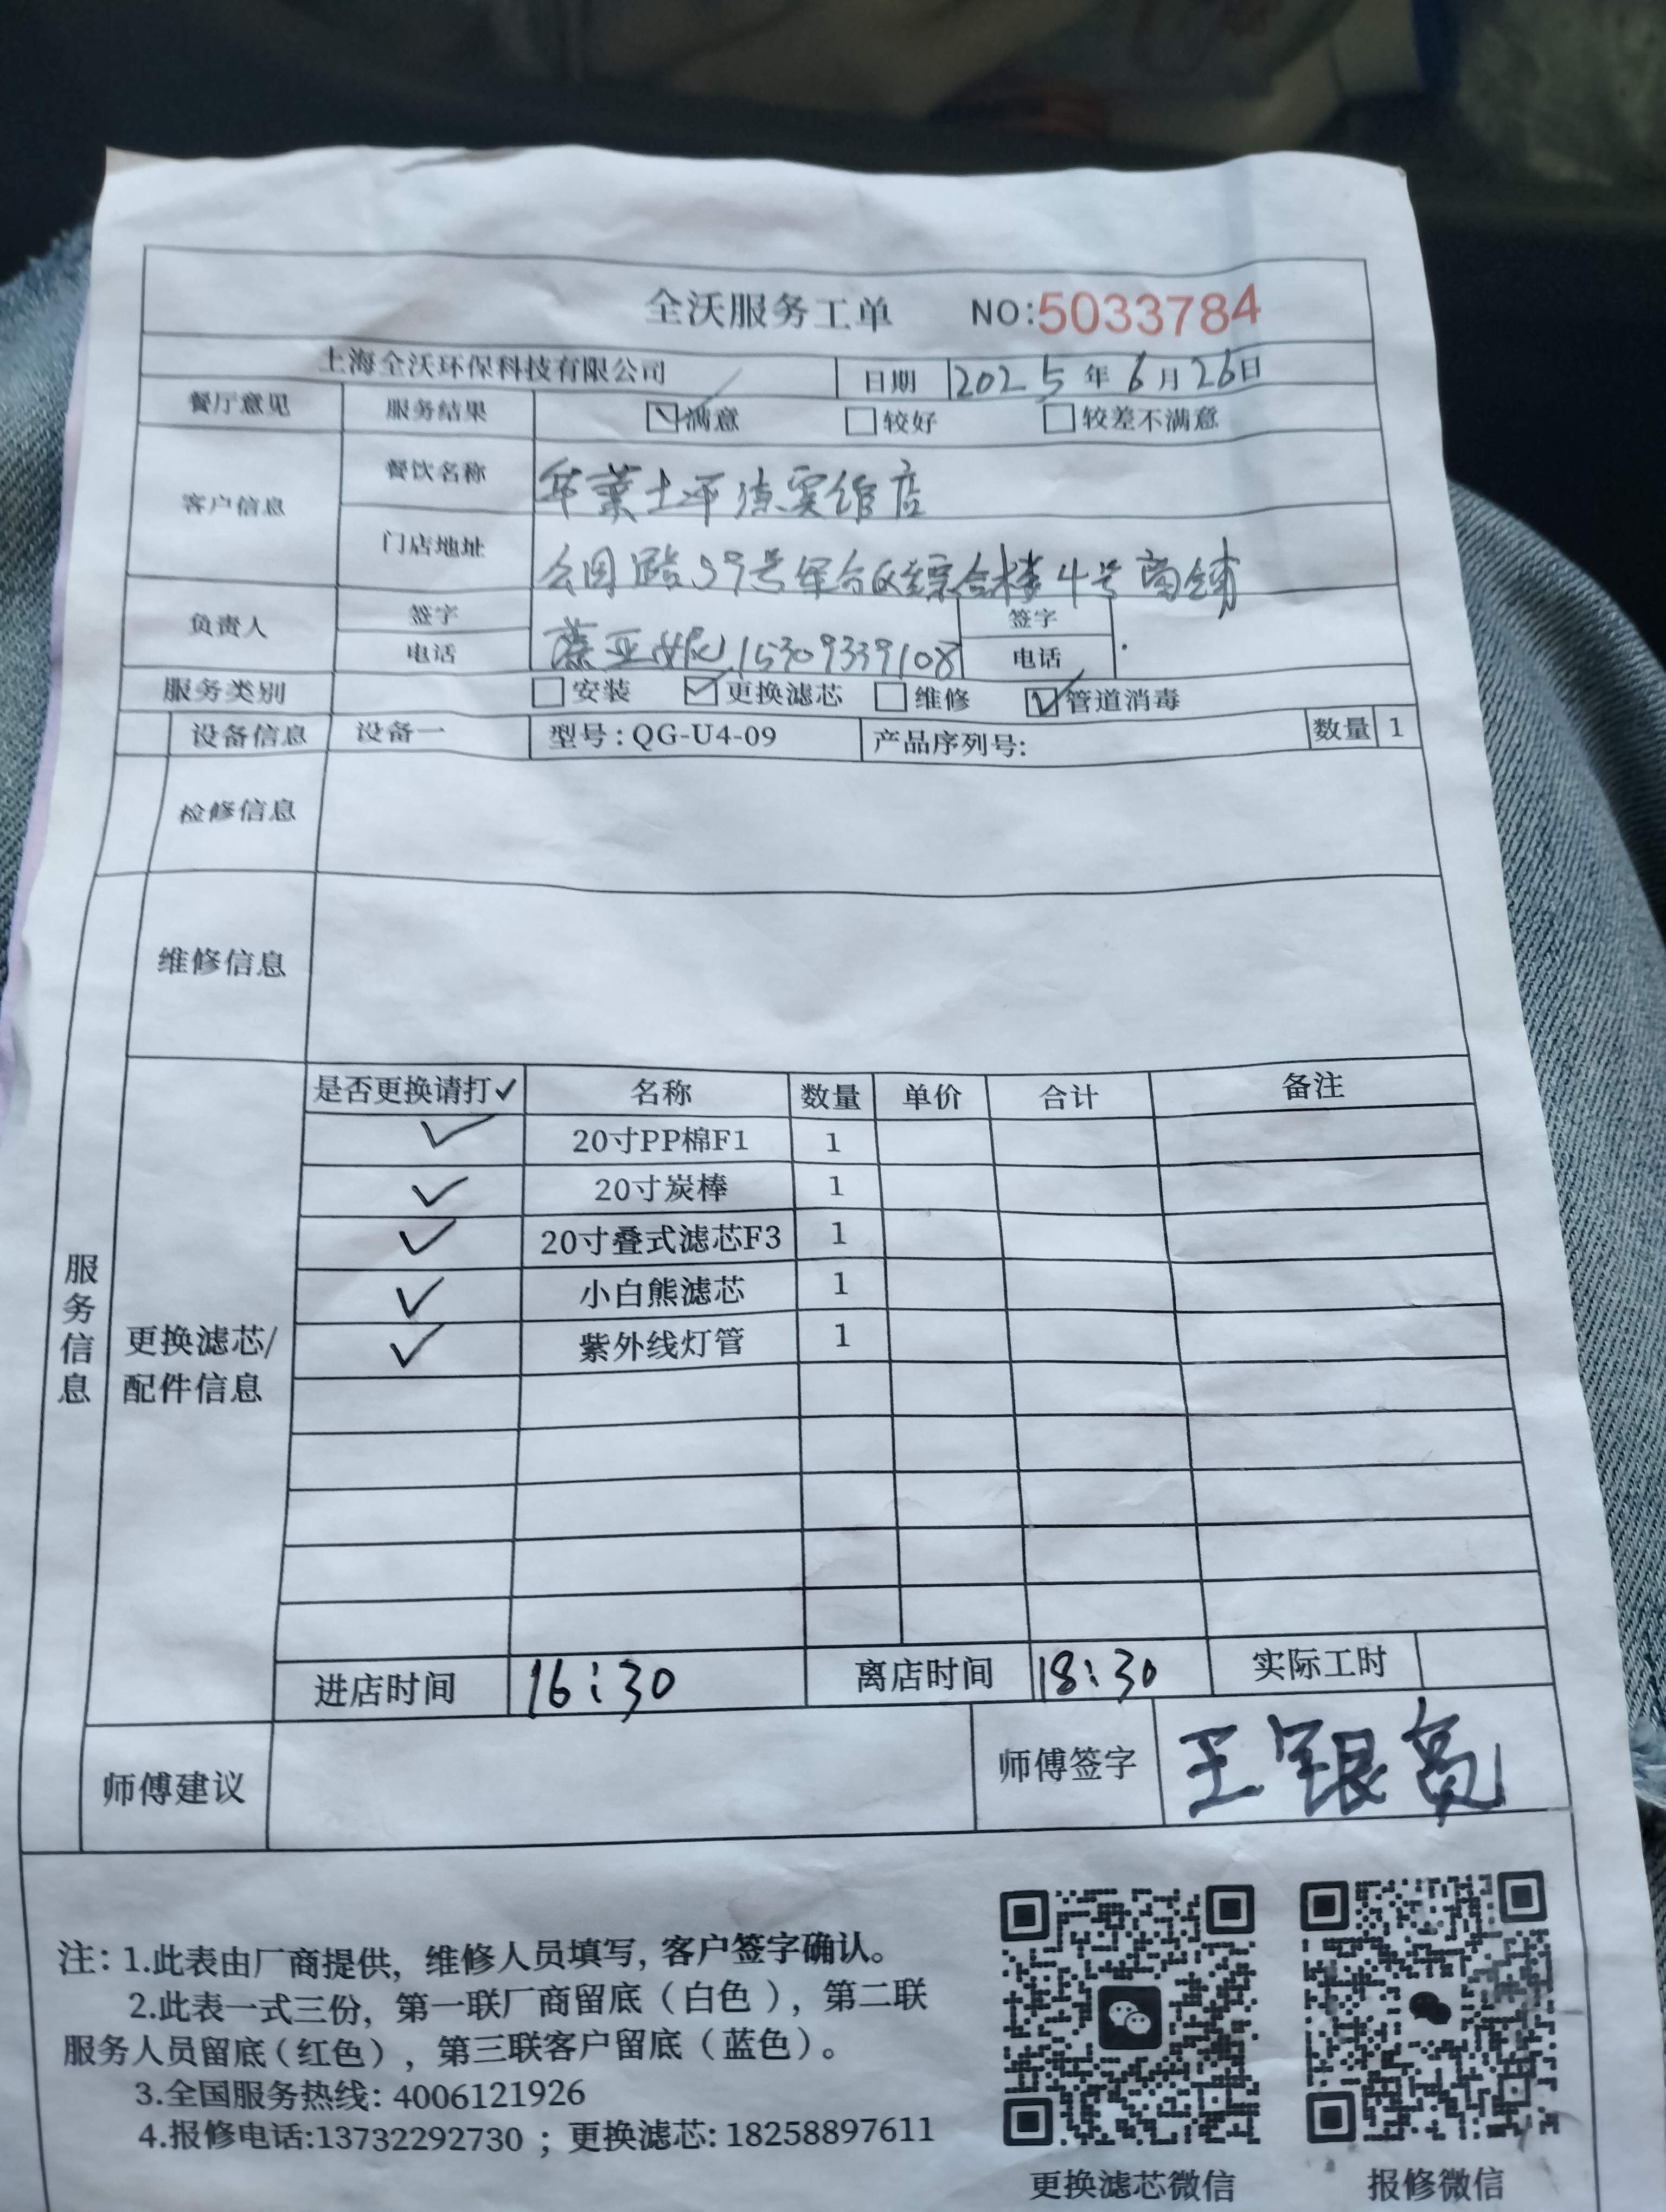 全沃服务工单 NO:5033784
上海全沃环保科技有限公司 日期 2025年6月26日
餐厅意见 服务结果 満意 较好 较差不满意
客户信息 餐饮名称 华莱士平凉 店
门店地址 公园路59号军分区综合楼4号商铺
负责人 签字 亚妮 签字
电话 15309339108 电话
服务类别 安装 更换滤芯 维修 管道消毒
设备信息 设备一 型号:QG-U4-09 产品序列号: 数量 1
检修信息
维修信息
服务信息
更换滤芯/配件信息
是否更换请打✓ 名称 数量 单价 合计 备注
✓ 20寸PP棉F1 1
✓ 20寸炭棒 1
✓ 20寸叠式滤芯F3 1
✓ 小白熊滤芯 1
✓ 紫外线灯管 1
进店时间 16:30 离店时间 18:30 实际工时
师傅建议 师傅签字 王银亮
注: 1.此表由厂商提供, 维修人员填写, 客户签字确认。
2.此表一式三份, 第一联厂商留底(白色), 第二联
服务人员留底(红色), 第三联客户留底(蓝色)。
3.全国服务热线: 4006121926
4.报修电话:13732292730 ; 更换滤芯: 18258897611
更换滤芯微信 报修微信